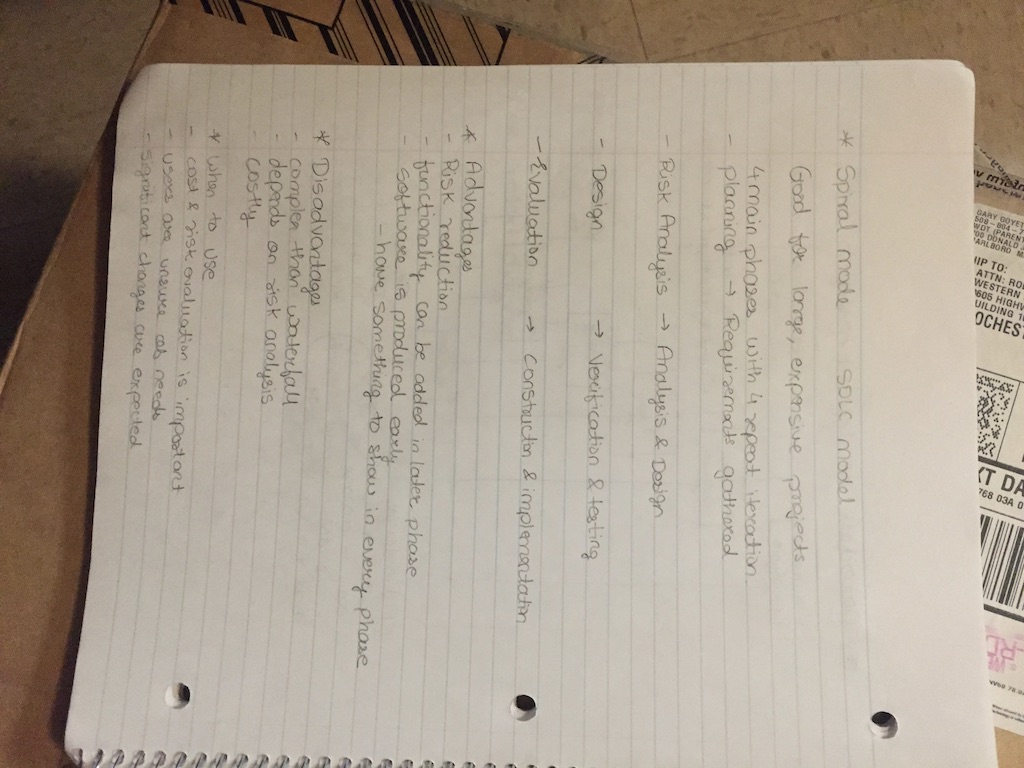 * Spiral mode SDLC model
Good for large, expensive projects
4 main phases with 4 repeat iteration
- planning → Requirements gathered
- Risk Analysis → Analysis & Design
- Design → Verification & testing
- Evaluation → Construction & implementation
* Advantages
- Risk reduction
- functionality can be added in later phase
- software is produced early
- have something to show in every phase
* Disadvantages
- complex than waterfall
- depends on risk analysis
- costly
* When to use
- cost & risk evaluation is important
- users are unsure needs
- significant changes are expected
GARY DOYE
SHIP TO:
ATTN:
WESTERN
BUILDING
ROCHEST